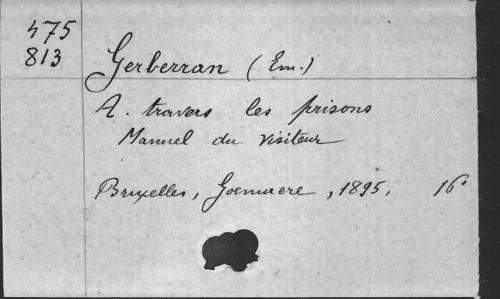 475
813
Gerberran (Em.)
A. travers les prisons
Manuel du visiteur
Bruxelles, Goemaere, 1895, 16°